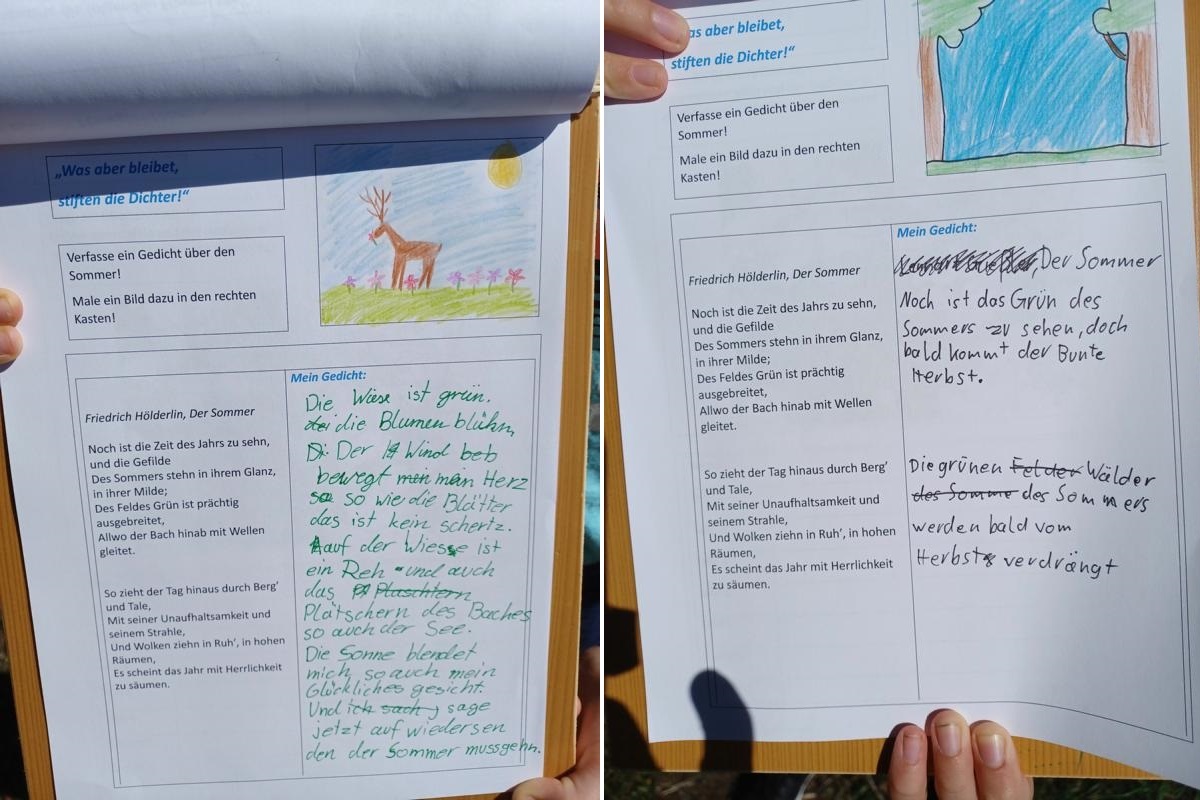 „Was aber bleibet,
stiften die Dichter!“
Verfasse ein Gedicht über den
Sommer!
Male ein Bild dazu in den rechten
Kasten!
Friedrich Hölderlin, Der Sommer
Noch ist die Zeit des Jahrs zu sehn,
und die Gefilde
Des Sommers stehn in ihrem Glanz,
in ihrer Milde;
Des Feldes Grün ist prächtig
ausgebreitet,
Allwo der Bach hinab mit Wellen
gleitet.
So zieht der Tag hinaus durch Berg’
und Tale,
Mit seiner Unaufhaltsamkeit und
seinem Strahle,
Und Wolken ziehn in Ruh’, in hohen
Räumen,
Es scheint das Jahr mit Herrlichkeit
zu säumen.
Mein Gedicht:
Die Wiese ist grün.
die Blumen blühn,
Der Wind beb
bewegt mein Herz
so wie die Blätter
das ist kein schertz.
auf der Wiese ist
ein Reh und auch
das Pluschtern
Plätschern des Baches
so auch der See.
Die Sonne blendet
mich, so auch mein
Glückliches gesicht.
Und ich sach, sage
jetzt auf wiedersen
den der Sommer mussgehn.
as aber bleibet,
stiften die Dichter!“
Verfasse ein Gedicht über den
Sommer!
Male ein Bild dazu in den rechten
Kasten!
Friedrich Hölderlin, Der Sommer
Noch ist die Zeit des Jahrs zu sehn,
und die Gefilde
Des Sommers stehn in ihrem Glanz,
in ihrer Milde;
Des Feldes Grün ist prächtig
ausgebreitet,
Allwo der Bach hinab mit Wellen
gleitet.
So zieht der Tag hinaus durch Berg’
und Tale,
Mit seiner Unaufhaltsamkeit und
seinem Strahle,
Und Wolken ziehn in Ruh’, in hohen
Räumen,
Es scheint das Jahr mit Herrlichkeit
zu säumen.
Mein Gedicht:
Der Sommer
Noch ist das Grün des
Sommers zu sehen, doch
bald kommt der Bunte
Herbst.
Die grünen Felder Wälder
des Somme des Sommers
werden bald vom
Herbst verdrängt